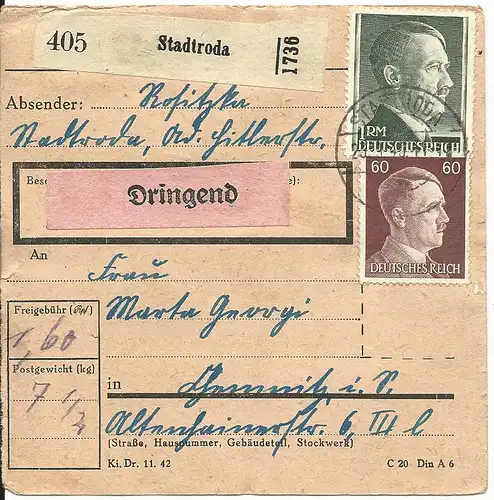 405 Stadtroda 1736
Absender: Rositzka
Stadtroda, Ad. Hitlerstr.
1RM
DEUTSCHES REICH
STADTRODA
Bes
e):
Dringend
60 60
DEUTSCHES REICH
An
Frau
Marta Georgi
Freigebühr (RM)
1,60
Postgewicht (kg)
7 1/2
in Chemnitz i. S.
Altenhainerstr. 6 III l
(Straße, Hausnummer, Gebäudeteil, Stockwerk)
Ki. Dr. 11. 42
C 20 Din A 6